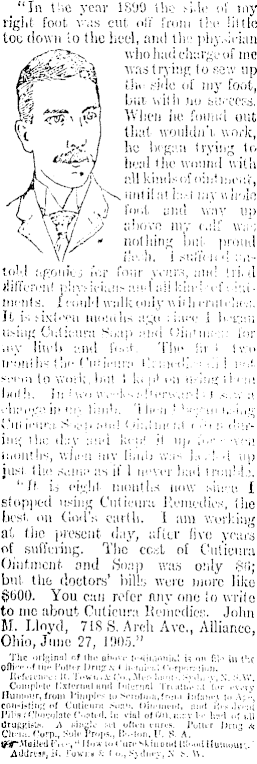 "In the year 1899 the side of my
right foot was cut off from the little
toe down to the heel, and the physician
who had charge of me
was trying to sew up
the side of my foot,
but with no success.
When he found out
that wouldn't work,
he began trying to
heal the wound with
all kinds of ointment,
until at last my whole
foot and way up
above my calf was
nothing but proud
flesh. I suffered un-
told agonies for four years, and tried
different physicians and all kinds of oint-
ments. I could walk only with crutches.
It is sixteen months ago since I began
using Cuticura Soap and Ointment for
my limb and foot. The first two
months the Cuticura Remedies did not
seem to work, but I kept on using them
both. In two weeks afterward I saw a
change in my limb. Then I began using
Cuticura Soap and Ointment often dur-
ing the day and kept it up for seven
months, when my limb was healed up
just the same as if I never had trouble.
"It is eight months now since I
stopped using Cuticura Remedies, the
best on God's earth. I am working
at the present day, after five years
of suffering. The cost of Cuticura
Ointment and Soap was only $6;
but the doctors' bills were more like
$600. You can refer any one to write
to me about Cuticura Remedies. John
M. Lloyd, 718 S. Arch Ave., Alliance,
Ohio, June 27, 1905."
The original of the above testimonial is on file in the
office of the Potter Drug & Chemical Corporation.
Reference: R. Towns & Co., Merchants, Sydney, N. S. W.
Complete External and Internal Treatment for every
Humour, from Pimples to Scrofula, from Infancy to Age,
consisting of Cuticura Soap, Ointment, and Resolvent
Pills (Chocolate Coated, in vial of 60), may be had of all
druggists. A single set often cures. Potter Drug &
Chem. Corp., Sole Props., Boston, U. S. A.
Mailed Free, "How to Cure Skin and Blood Humours."
Address, R. Towns & Co., Sydney, N. S. W.